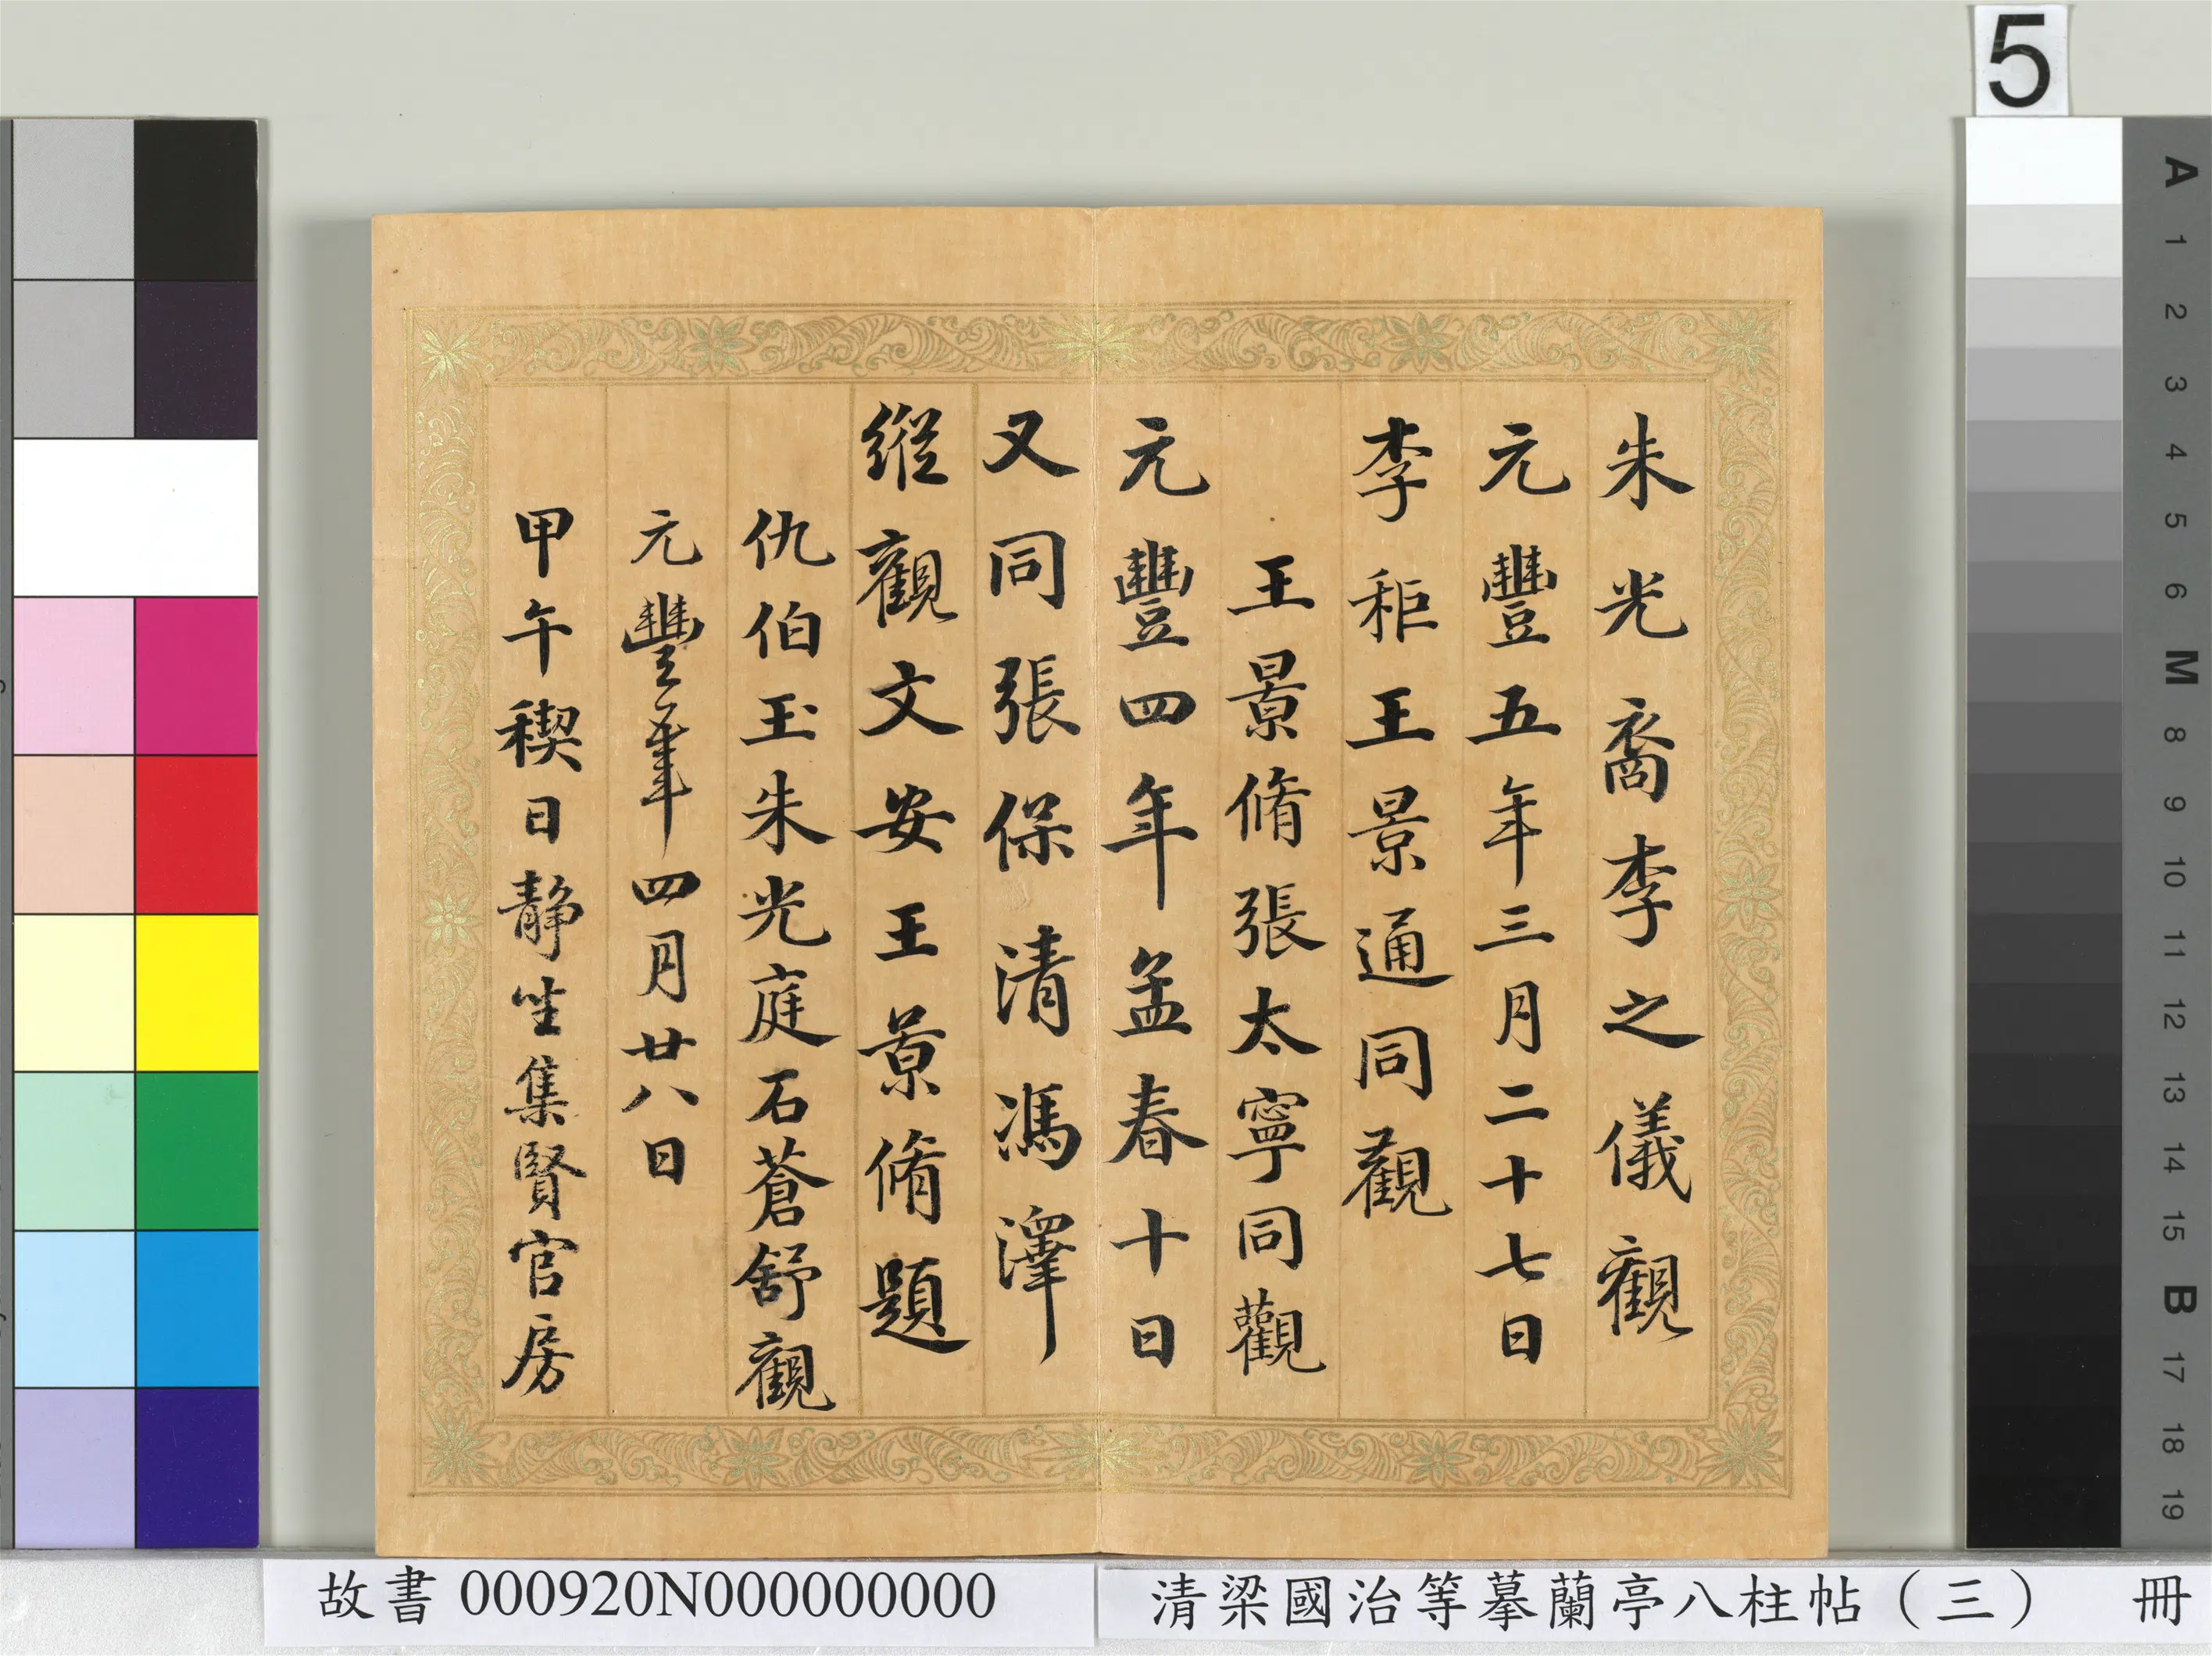 朱光裔李之儀觀
元豐五年三月二十七日
李秬王景通同觀
王景脩張太寧同觀
元豐四年孟春十日
又同張保清馮澤
縱觀文安王景脩題
仇伯玉朱光庭石蒼舒觀
元豐年四月廿八日
甲午稧日靜坐集賢官房
5
A
1
2
3
4
5
6
M
8
9
10
11
12
13
14
15
B
17
18
19
故書000920N000000000
清梁國治等摹蘭亭八柱帖（三） 冊